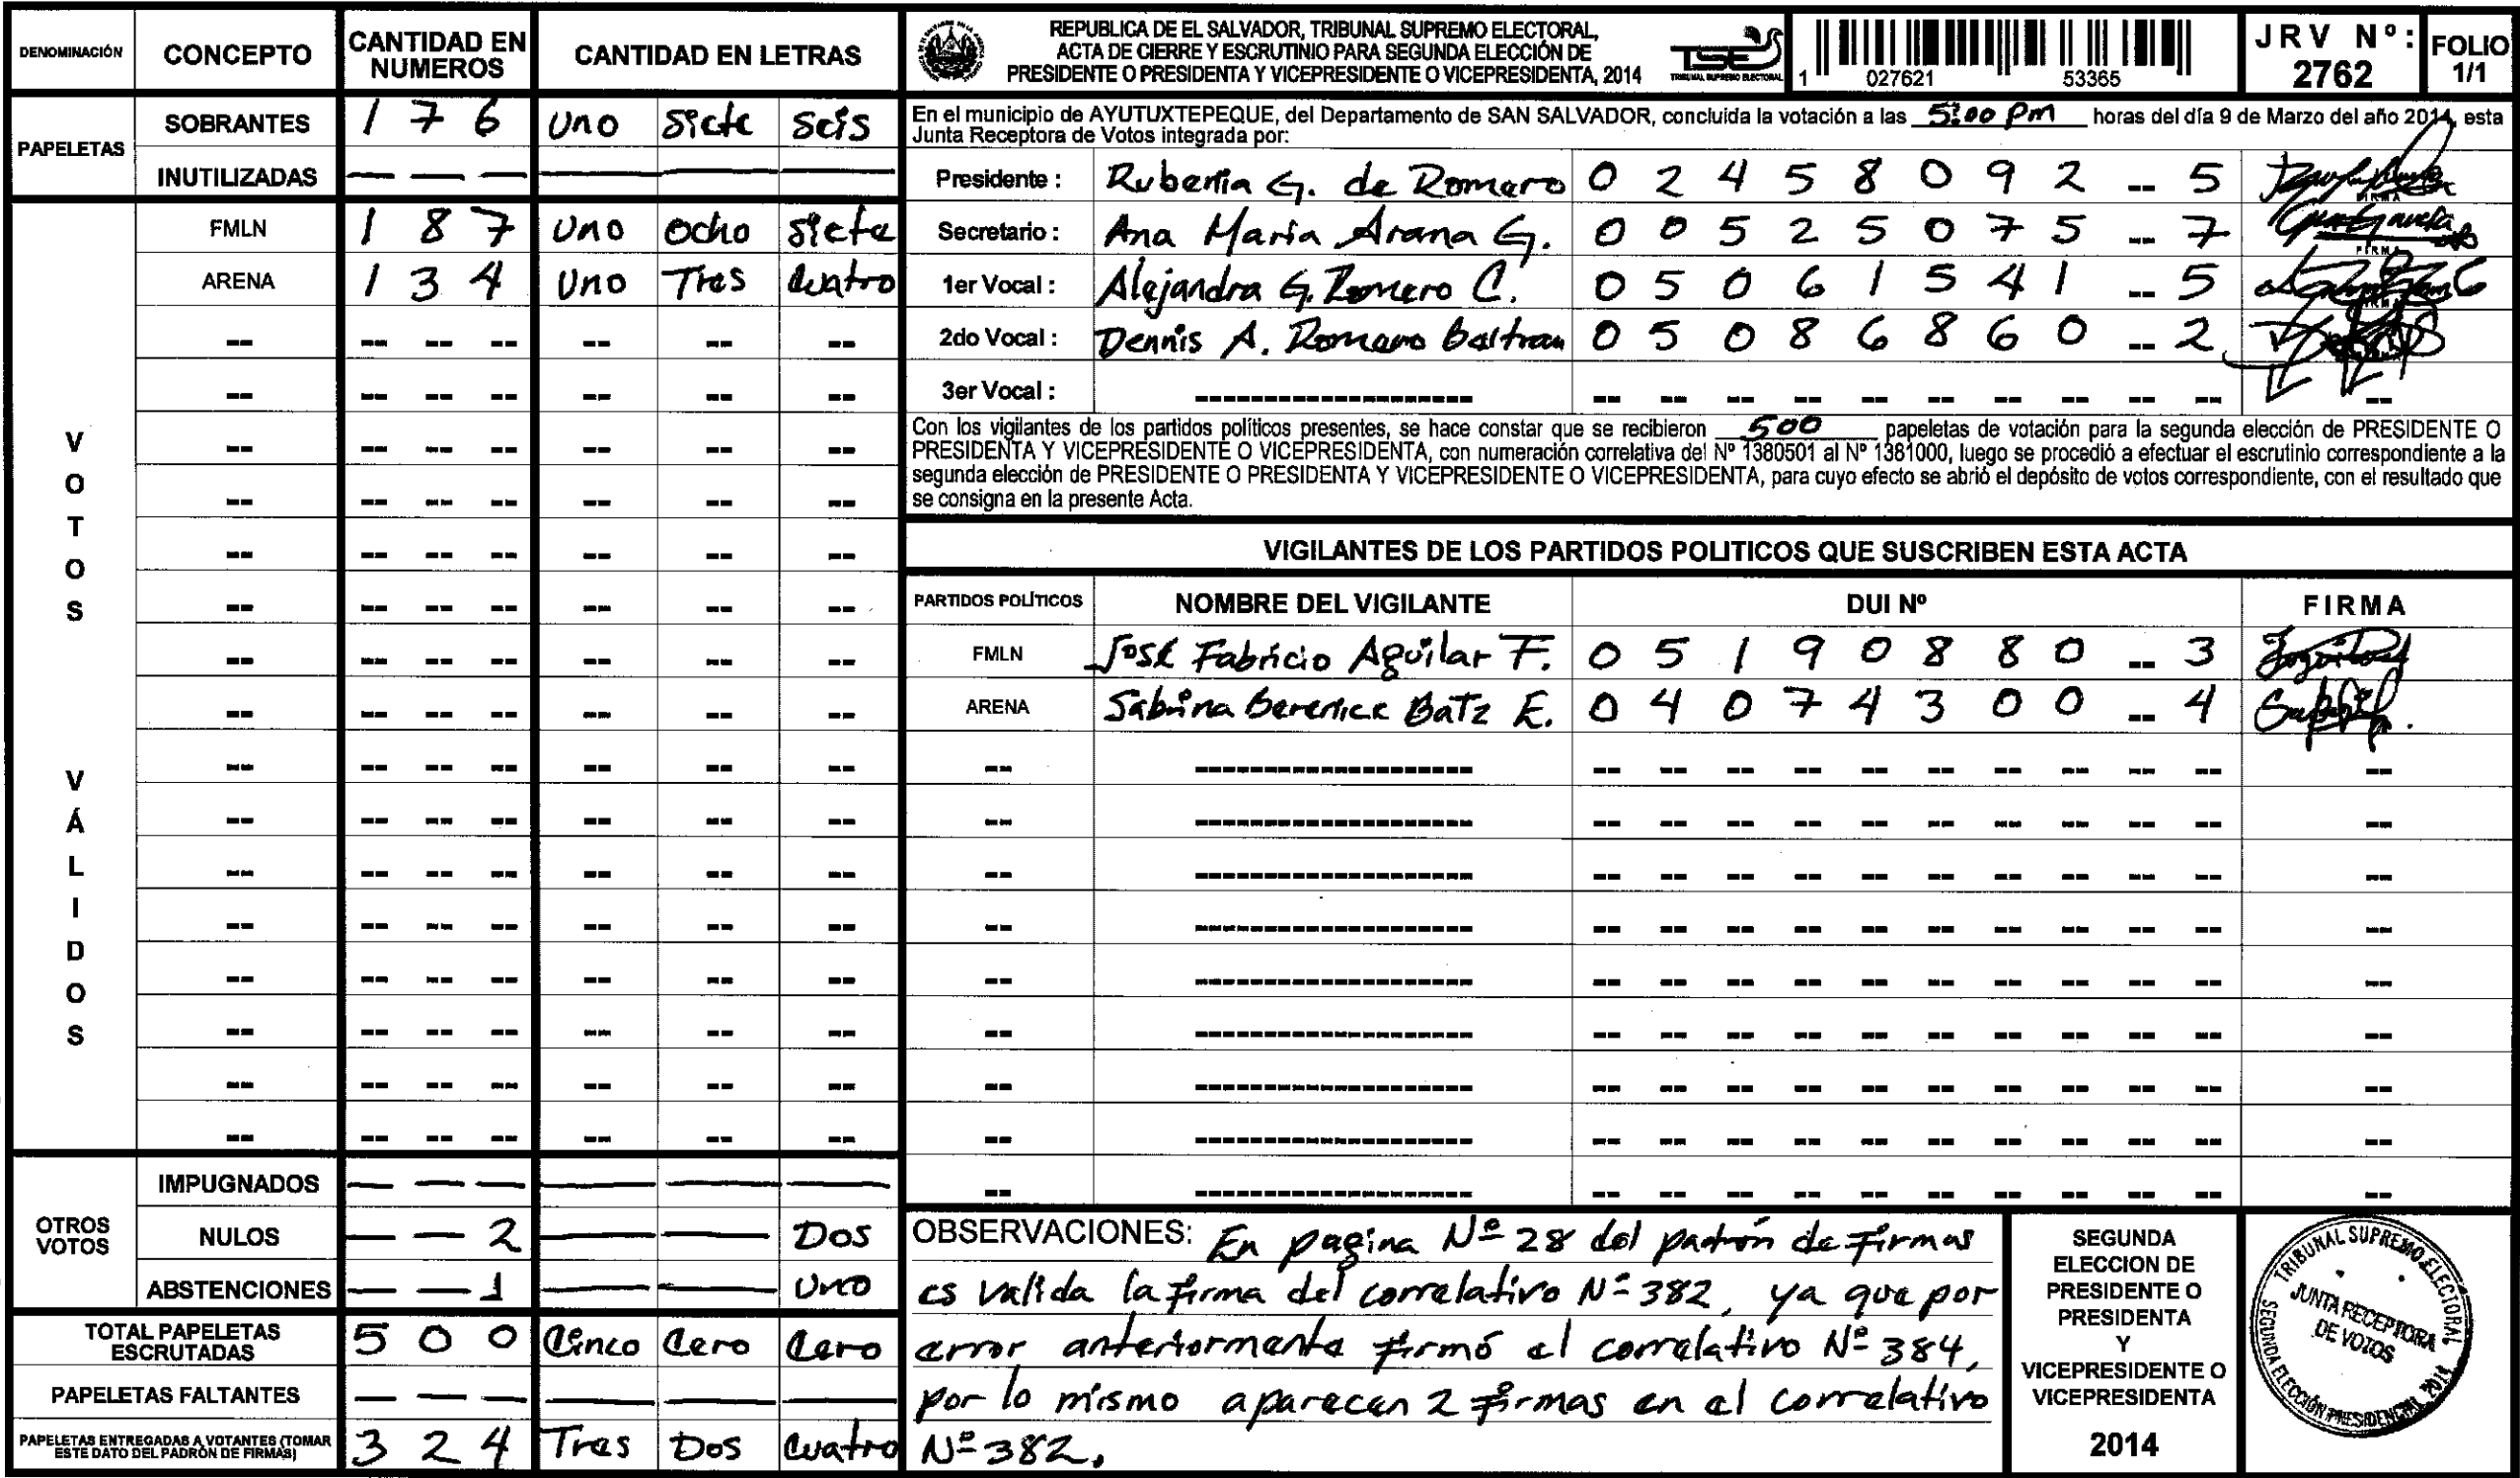 DENOMINACIÓN CONCEPTO CANTIDAD EN NUMEROS CANTIDAD EN LETRAS
PAPELETAS
SOBRANTES 1 7 6 Uno Siete Seis
INUTILIZADAS — — — — — —
VOTOS VÁLIDOS
FMLN 1 8 7 Uno Ocho Siete
ARENA 1 3 4 Uno Tres Cuatro
OTROS VOTOS
IMPUGNADOS — — — — — —
NULOS — — 2 — — Dos
ABSTENCIONES — — 1 — — Uno
TOTAL PAPELETAS ESCRUTADAS 5 0 0 Cinco Cero Cero
PAPELETAS FALTANTES — — — — — —
PAPELETAS ENTREGADAS A VOTANTES (TOMAR ESTE DATO DEL PADRÓN DE FIRMAS) 3 2 4 Tres Dos Cuatro
REPUBLICA DE EL SALVADOR, TRIBUNAL SUPREMO ELECTORAL,
ACTA DE CIERRE Y ESCRUTINIO PARA SEGUNDA ELECCIÓN DE
PRESIDENTE O PRESIDENTA Y VICEPRESIDENTE O VICEPRESIDENTA, 2014
TSE
TRIBUNAL SUPREMO ELECTORAL
1 027621 53365
JRV Nº: 2762
FOLIO 1/1
En el municipio de AYUTUXTEPEQUE, del Departamento de SAN SALVADOR, concluida la votación a las 5:00 pm horas del día 9 de Marzo del año 2014, esta
Junta Receptora de Votos integrada por:
Presidente : G. de Romero 0 2 4 5 8 0 9 2 -- 5
FIRMA
Secretario : Ana Maria Arana G. 0 0 5 2 5 0 7 5 -- 7
FIRMA
1er Vocal : Alejandra G. Romero C. 0 5 0 6 1 5 4 1 -- 5
2do Vocal : Dennis A. Romero Beltran 0 5 0 8 6 8 6 0 -- 2
3er Vocal :
Con los vigilantes de los partidos políticos presentes, se hace constar que se recibieron 500 papeletas de votación para la segunda elección de PRESIDENTE O
PRESIDENTA Y VICEPRESIDENTE O VICEPRESIDENTA, con numeración correlativa del Nº 1380501 al Nº 1381000, luego se procedió a efectuar el escrutinio correspondiente a la
segunda elección de PRESIDENTE O PRESIDENTA Y VICEPRESIDENTE O VICEPRESIDENTA, para cuyo efecto se abrió el depósito de votos correspondiente, con el resultado que
se consigna en la presente Acta.
VIGILANTES DE LOS PARTIDOS POLITICOS QUE SUSCRIBEN ESTA ACTA
PARTIDOS POLÍTICOS NOMBRE DEL VIGILANTE DUI Nº FIRMA
FMLN José Fabricio Aguilar F. 0 5 1 9 0 8 8 0 -- 3
ARENA Sabrina Berenice Batz E. 0 4 0 7 4 3 0 0 -- 4
OBSERVACIONES: En pagina Nº 28 del patrón de firmas
es valida la firma del correlativo Nº 382, ya que por
error anteriormente firmó el correlativo Nº 384,
por lo mismo aparecen 2 firmas en el correlativo
Nº 382.
SEGUNDA
ELECCION DE
PRESIDENTE O
PRESIDENTA
Y
VICEPRESIDENTE O
VICEPRESIDENTA
2014
TRIBUNAL SUPREMO ELECTORAL
JUNTA RECEPTORA
DE VOTOS
SEGUNDA ELECCIÓN PRESIDENCIAL 2014